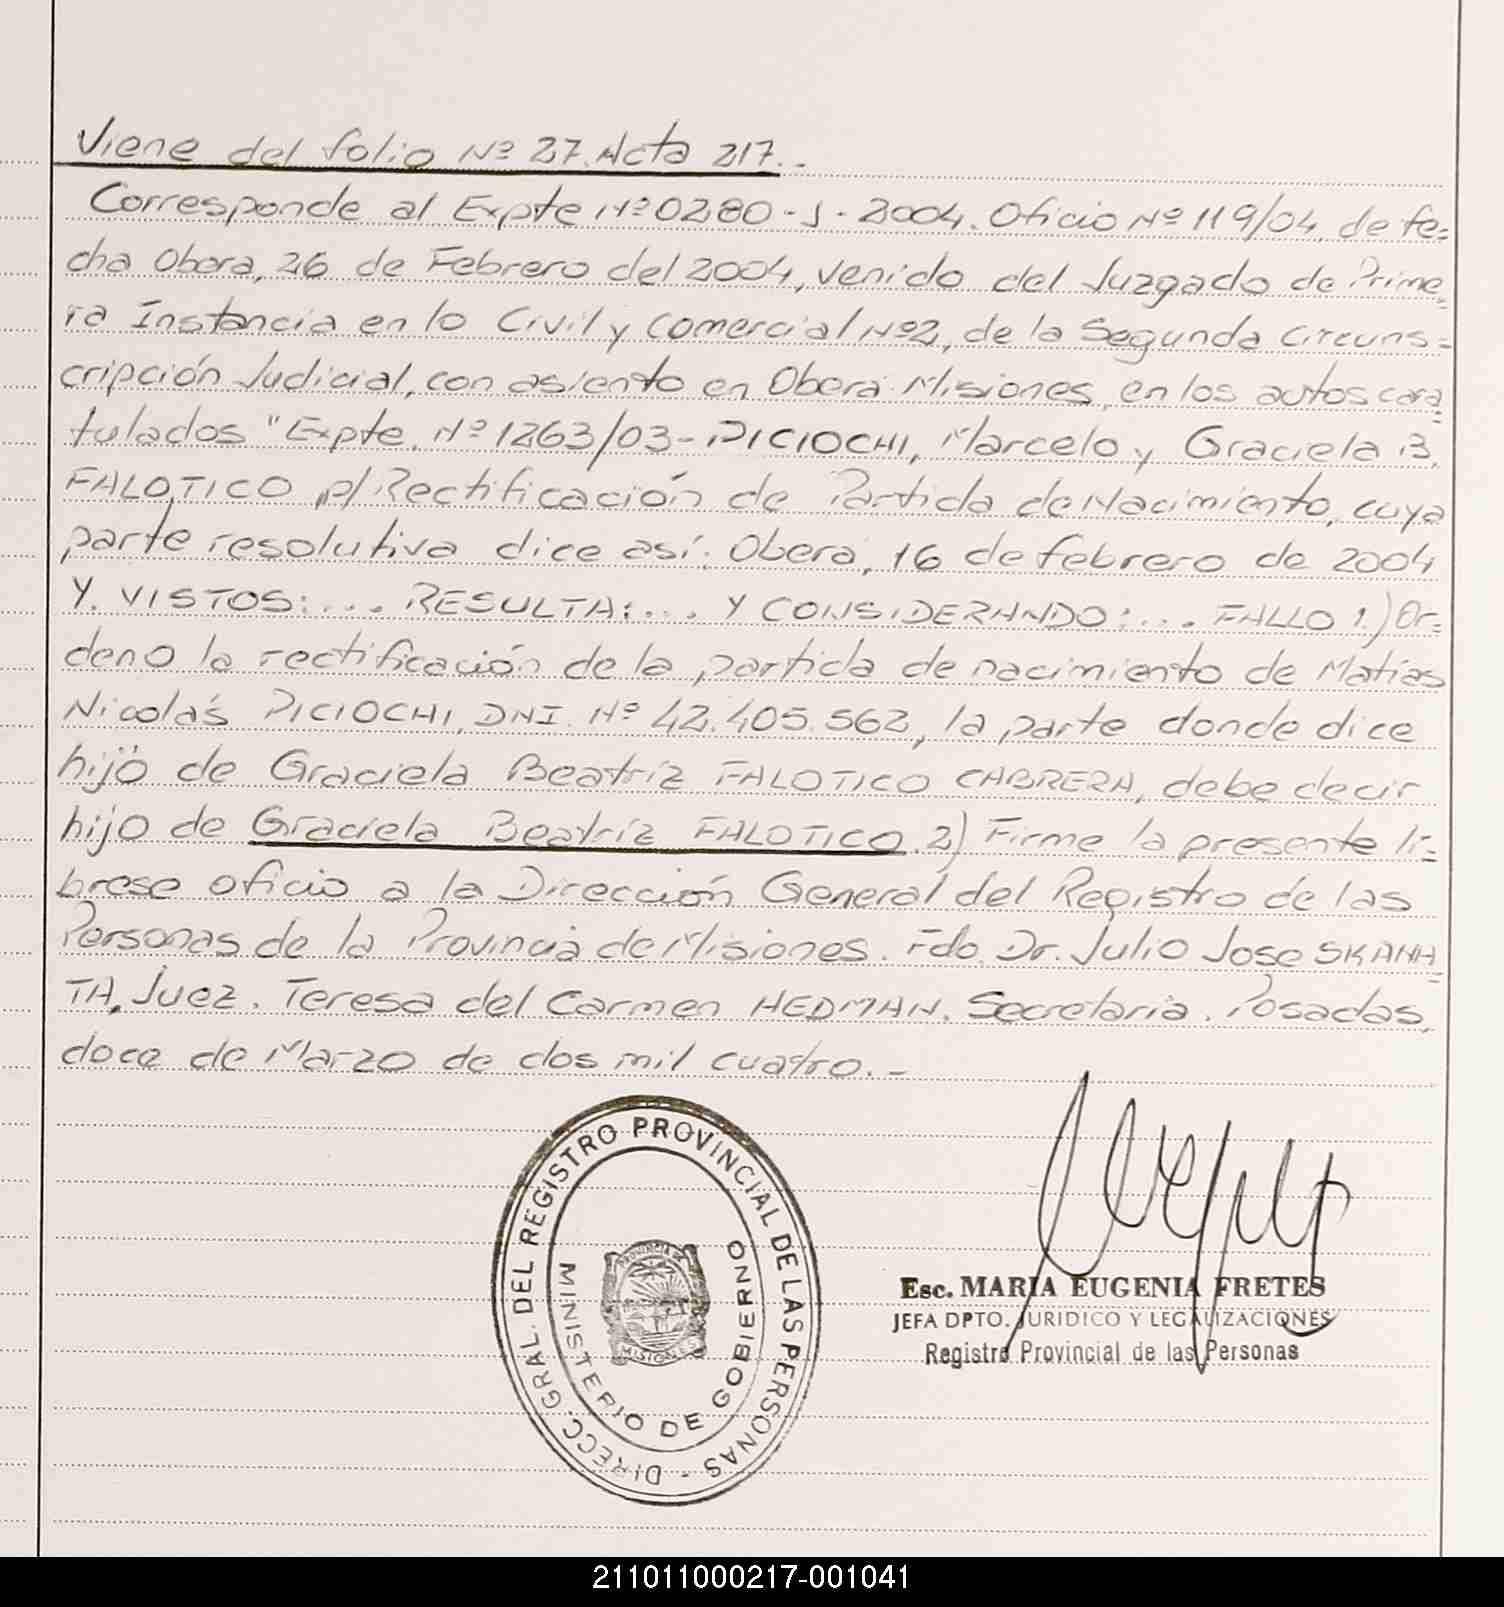 Viene del folio Nº 27. Acta 217..
Corresponde al Expte Nº 0280-J-2004. Oficio Nº 119/04, de fe=
cha Obera, 26 de Febrero del 2004, venido del Juzgado de Prime
ra Instancia en lo Civil y Comercial Nº2, de la Segunda Circuns=
cripción Judicial, con asiento en Oberá Misiones, en los autos cara
tulados "Expte. Nº 1263/03-PICIOCHI, Marcelo y Graciela B.
FALOTICO p/Rectificación de Partida de Nacimiento, cuya
parte resolutiva dice así: Oberá, 16 de febrero de 2004
Y VISTOS:.... RESULTA:... Y CONSIDERANDO:... FALLO 1.) Or=
deno la rectificación de la partida de nacimiento de Matias
Nicolás PICIOCHI, DNI. Nº 42.405.562, la parte donde dice
hijo de Graciela Beatríz FALOTICO CABRERA, debe decir
hijo de Graciela Beatríz FALOTICO. 2) Firme la presente lí=
brese oficio a la Dirección General del Registro de las
Personas de la Provincia de Misiones. Fdo. Dr. Julio Jose SKANA
TA, Juez. Teresa del Carmen HEDMAN. Secretaria. Posadas,
doce de Marzo de dos mil cuatro.-
DIRECC. GRAL. DEL REGISTRO PROVINCIAL DE LAS PERSONAS -
MINISTERIO DE GOBIERNO
PROVINCIA DE
MISIONES
Esc. MARIA EUGENIA FRETES
JEFA DPTO. JURIDICO Y LEGALIZACIONES
Registro Provincial de las Personas
211011000217-001041